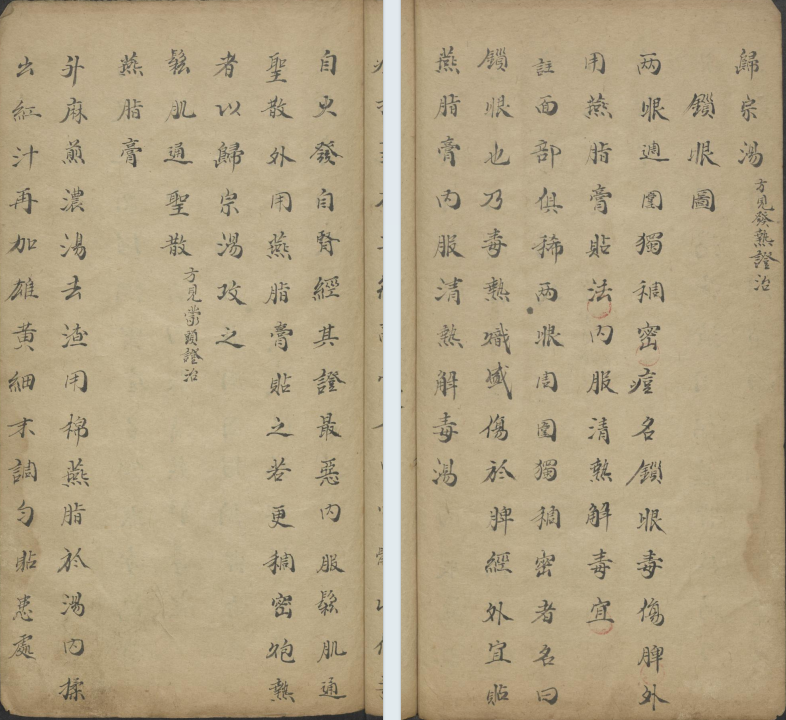 歸宗湯 方見發熱證治
鎖眼圖
两眼週圍獨稠密痘名鎖眼毒傷脾外
用燕脂膏貼法内服清熱解毒宜
註面部俱稀两眼周圍獨稠密者名曰
鎖眼也乃毒熱熾傷於脾經外宜貼
燕脂膏内服清熱解毒湯
自火發自腎經其證最惡内服鬆肌通
聖散外用燕脂膏貼之若更稠密炮熱
者以歸宗湯攻之
鬆肌通聖散 方見蒙頭證治
燕脂膏
升麻煎濃湯去渣用棉燕脂於湯内揉
出紅汁再加雄黄細末調勻貼患處